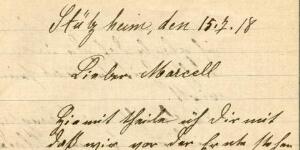 Stützheim, den 15.7.18
Lieber Marcell
Hiemit theile ich Dir mit
daß wir vor der Ernte stehen